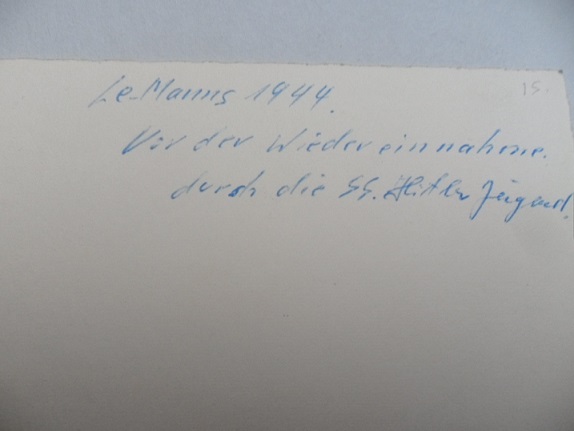 15.
Le-Manns 1944.
Vor der Wiedereinnahme.
durch die SS. Hitler Jugend.